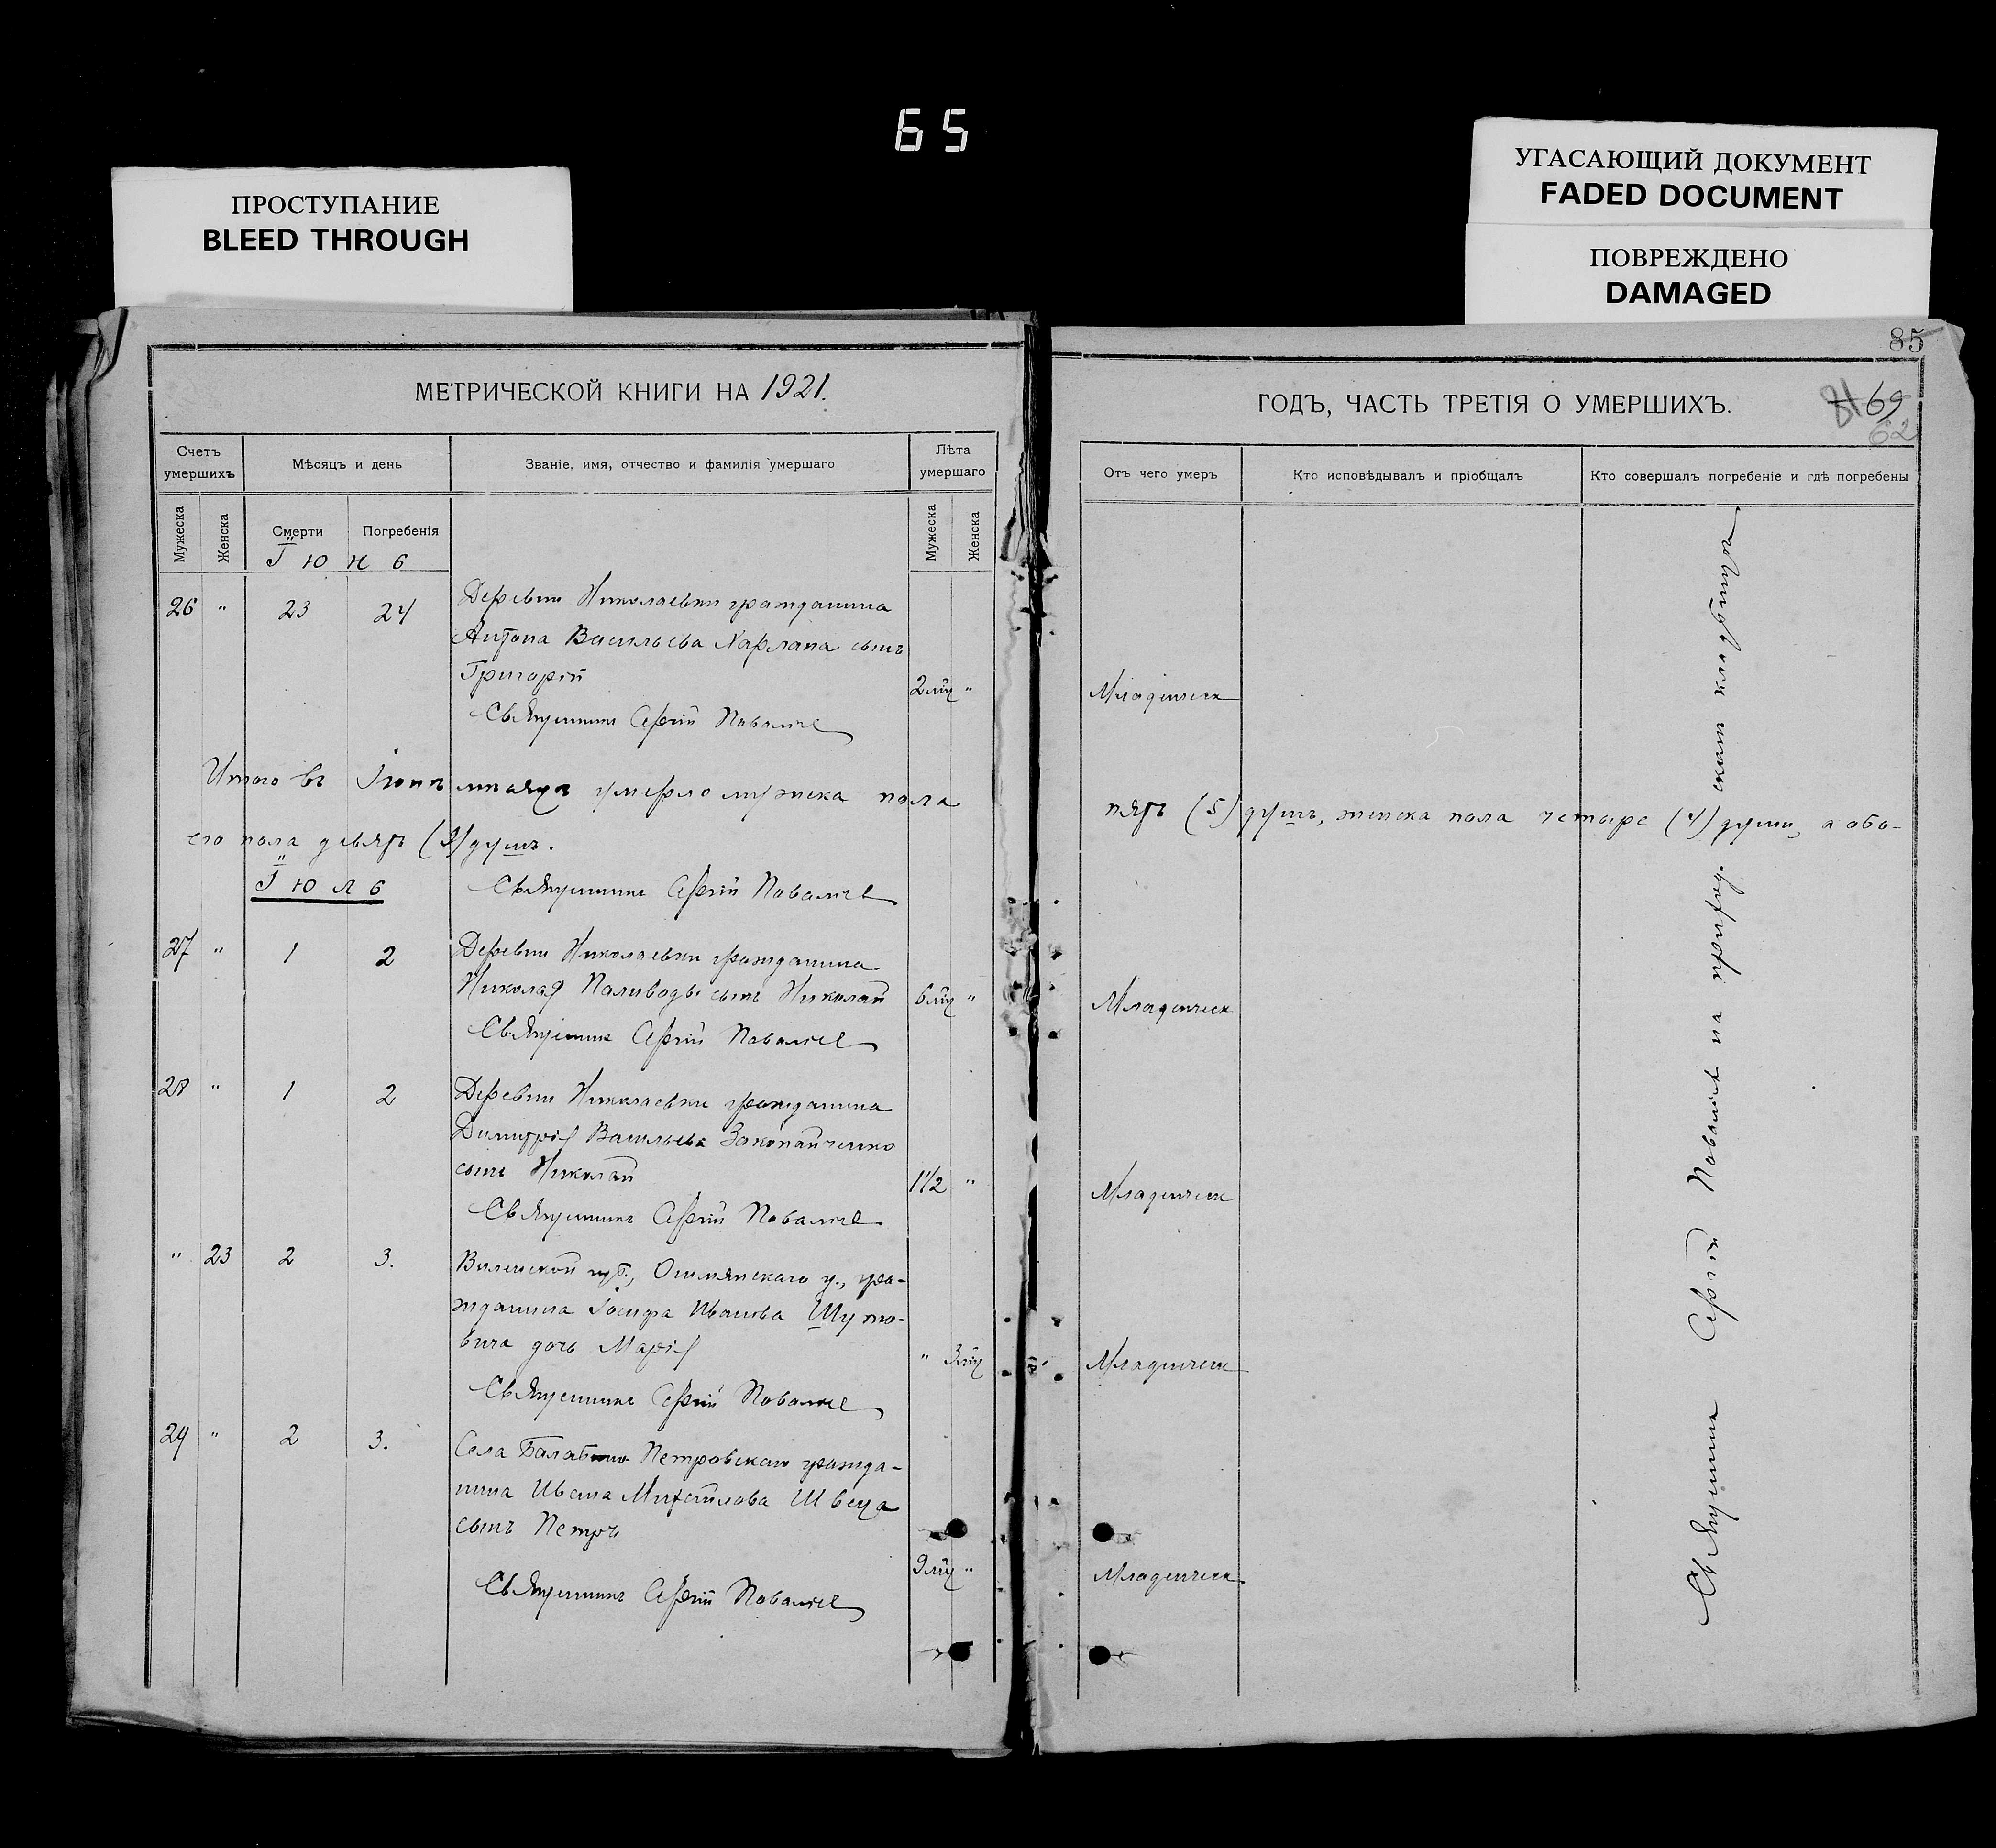 65
ПРОСТУПАНИЕ
BLEED THROUGH
УГАСАЮЩИЙ ДОКУМЕНТ
FADED DOCUMENT
ПОВРЕЖДЕНО
DAMAGED
МЕТРИЧЕСКОЙ КНИГИ НА 1921.
Счетъ умершихъ
Мѣсяцъ и день
Званіе, имя, отчество и фамилія умершаго
Лѣта умершаго
Мужеска
Женска
Смерти
Погребенія
Мужеска
Женска
Іюнь
26 " 23 24 Деревни Николаевки гражданина
Антона Васильева Харлана сынъ
Григорій 2 мц "
Священникъ Сергій
Итого въ Іюнѣ мѣсяцѣ умерло мужеска пола
его пола девять (9) душъ.
Іюль
Священникъ Сергій
27 " 1 2 Деревни Николаевки гражданина
Николая Паливоды сынъ Николай 6 мц "
Священникъ Сергій
28 " 1 2 Деревни Николаевки гражданина
Димитрія Васильева Закопайченко
сынъ Николай 1 1/2 "
Священникъ Сергій
" 23 2 3. Виленской губ., Ошмянскаго у., гра-
жданина Іосифа Иванова Шуто-
вича дочь Марія " 3 мц
Священникъ Сергій
29 " 2 3. Села Петровскаго гражда-
нина Ивана Михайлова Швеца
сынъ Петръ
9 мц "
Священникъ Сергій
85
ГОДЪ, ЧАСТЬ ТРЕТІЯ О УМЕРШИХЪ.
69
62
Отъ чего умеръ
Кто исповѣдывалъ и пріобщалъ
Кто совершалъ погребеніе и гдѣ погребены
Младенческ
пять (5) душъ, женска пола четыре (4) души, а обо-
Младенческ
Младенческ
Младенческ
Младенческ
Священникъ Сергій на приход. кладбищѣ